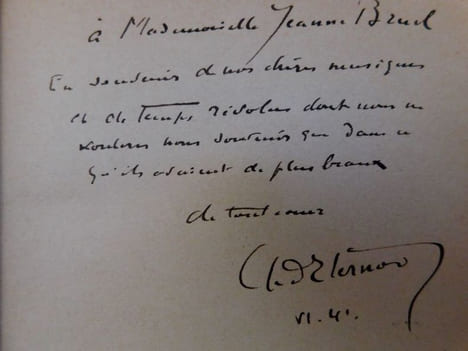 à Mademoiselle Jeanne Bruel
En souvenir de nos chères musiques
et de temps révolus dont nous ne
voulons nous souvenir que dans ce
qu'ils avaient de plus beaux
de tout cœur
VI. 41.